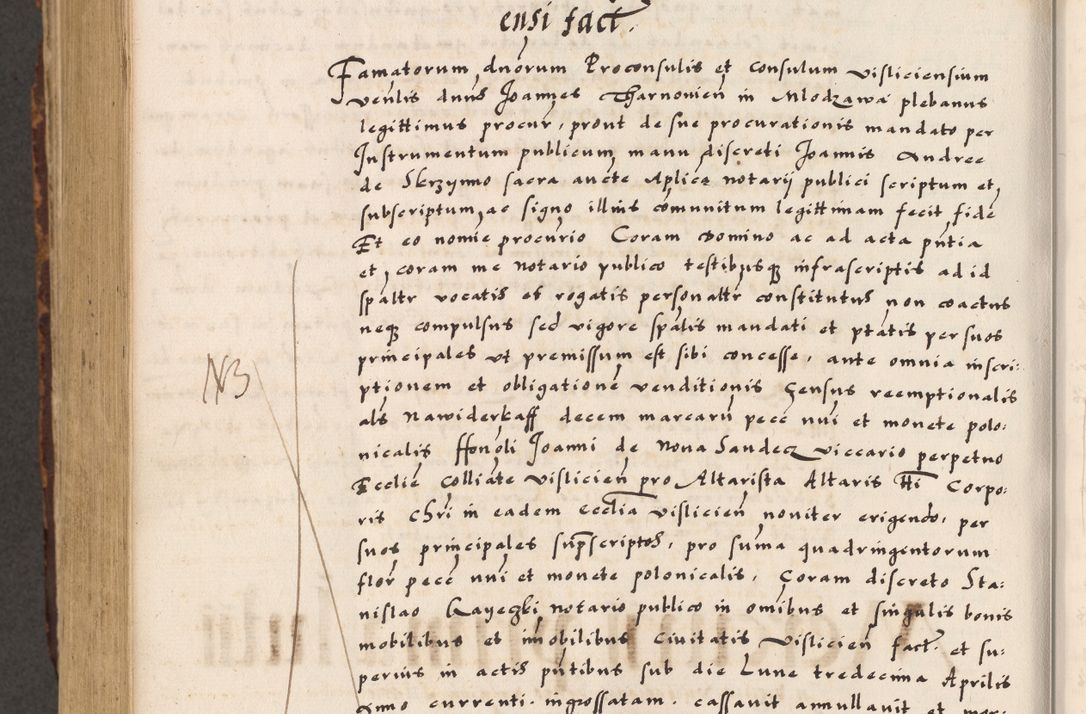 ensi fact.
Famatorum dnorum Proconsulis et consulum visliciensium
venlis dnus Joannes Tharnovien in Mlodzawa plebanus
legittimus procur, prout de sue procurationis mandato per
Instrumentum publicum, manu discreti Joannis Andree
de Skrzynno sacra aucte Aplica notarij publici scriptum et
subscriptum, ac signo illius comunitum legittimam fecit fide
Et eo nomie procurio Coram domino ac ad acta pntia
et, coram me notario publico testibusq infrascriptis ad id
spaltr vocatis et rogatis personaltr constitutus non coactus
neq compulsus sed vigore spalis mandati et ptatis per suos
principales ut premissum est sibi concesse, ante omnia inscri:
ptionem et obligatione venditionis Census reemptionalis
als Nawiderkaff decem marcaru pecc nui et monete polo:
nicalis ffonoli Joanni de Nova Sandecz viccario perpetuo
Ecclie Colliate vislicien pro Altarista Altaris tti Corpo:
ris Chri in eadem Ecclia vislicien noviter erigendo, per
suos principales supscriptos, pro suma quadringentorum
flor pecc nui et monete polonicalis, Coram discreto Sta:
nislao Kayeczki notario publico in omibus et singulis bonis
mobilibus et imobilibus Civitatis vislicien fact. et su:
perius in actis pntibus sub die Lune tredecima Aprilis
Anno currenti ingrossatam. cassavit annullavit et mor
NB